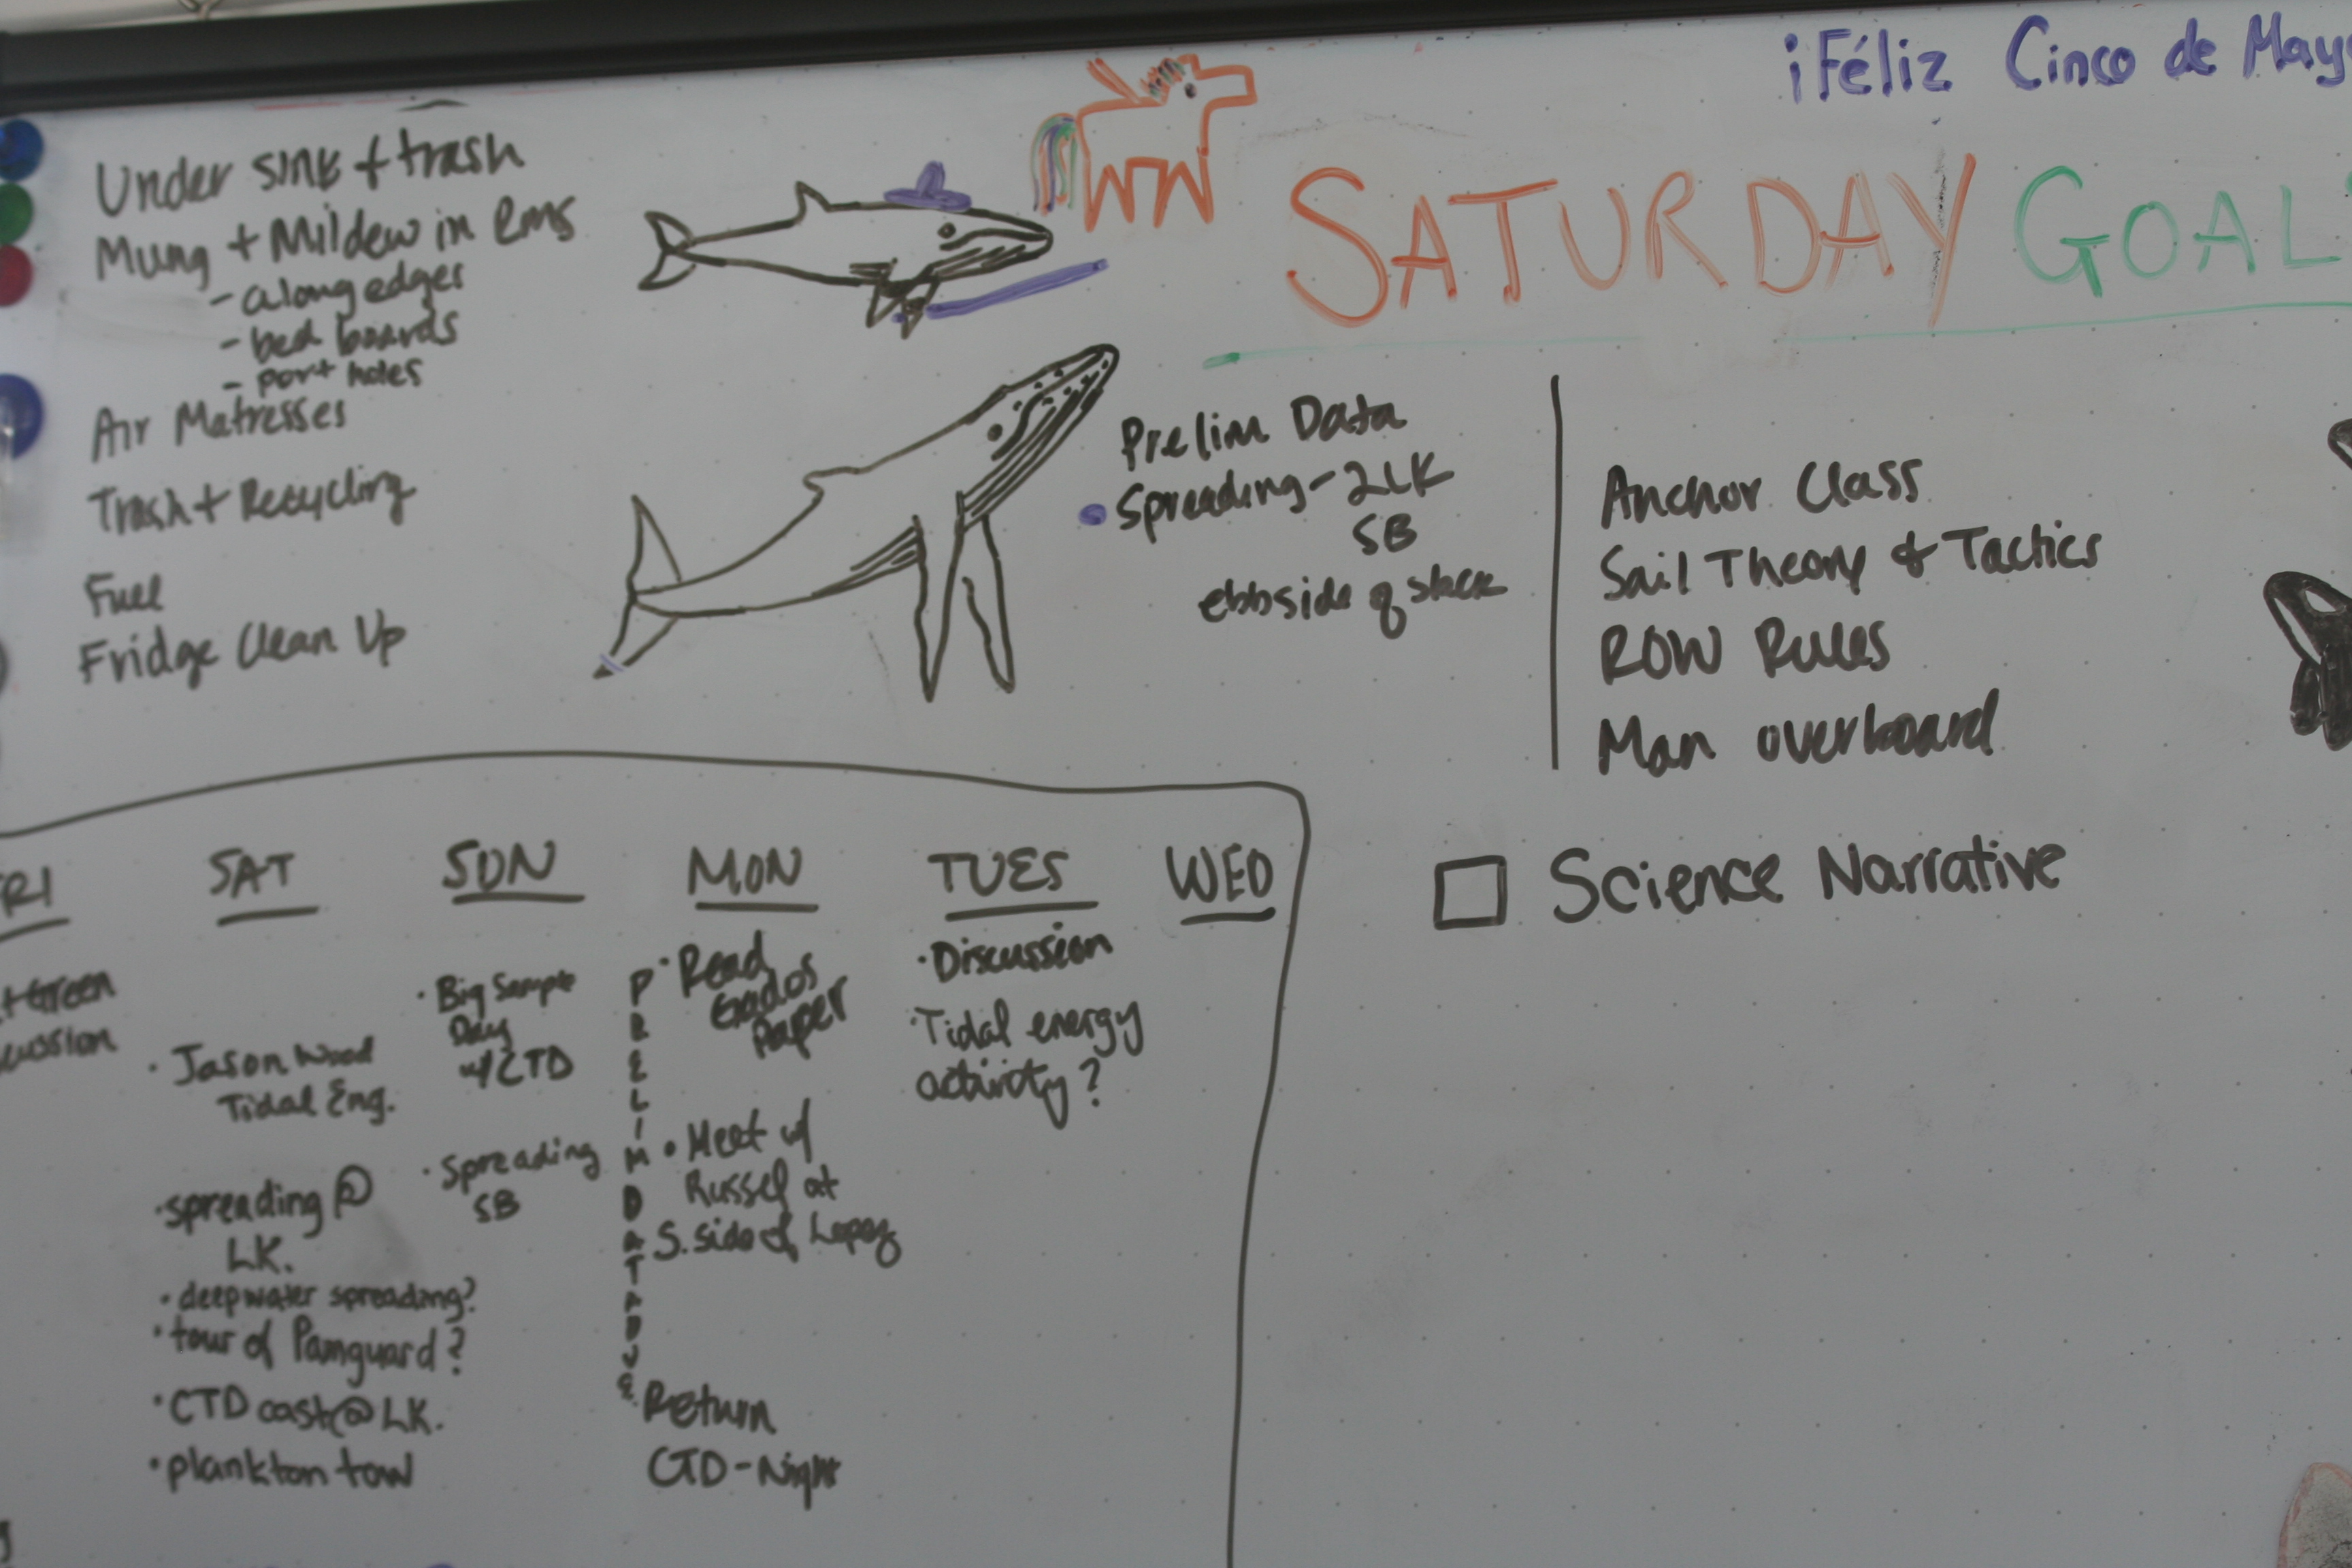 ¡Féliz Cinco de Mayo
SATURDAY GOALS
Under sink + trash
Mung + Mildew in rms
- along edges
- bed boards
- port holes
Air Matresses
Trash + Recycling
Fuel
Fridge Clean Up
Prelim Data
• Spreading - 2LK
SB
ebbside of slack
Anchor Class
Sail Theory & Tactics
ROW Rules
Man overboard
Science Narrative
SAT
· Jason Wood
Tidal Eng.
· spreading @
LK.
· deepwater spreading?
· tour of Pamguard?
· CTD cast @ LK.
· plankton tow
SUN
· Big Sample
Day
w/ CTD
· Spreading
SB
PRELIM DATA DUE
MON
· Read
Exados
Paper
• Meet w/
Russel at
S. side of Lopez
Return
CTD - Night
TUES
· Discussion
· Tidal energy
activity?
WED